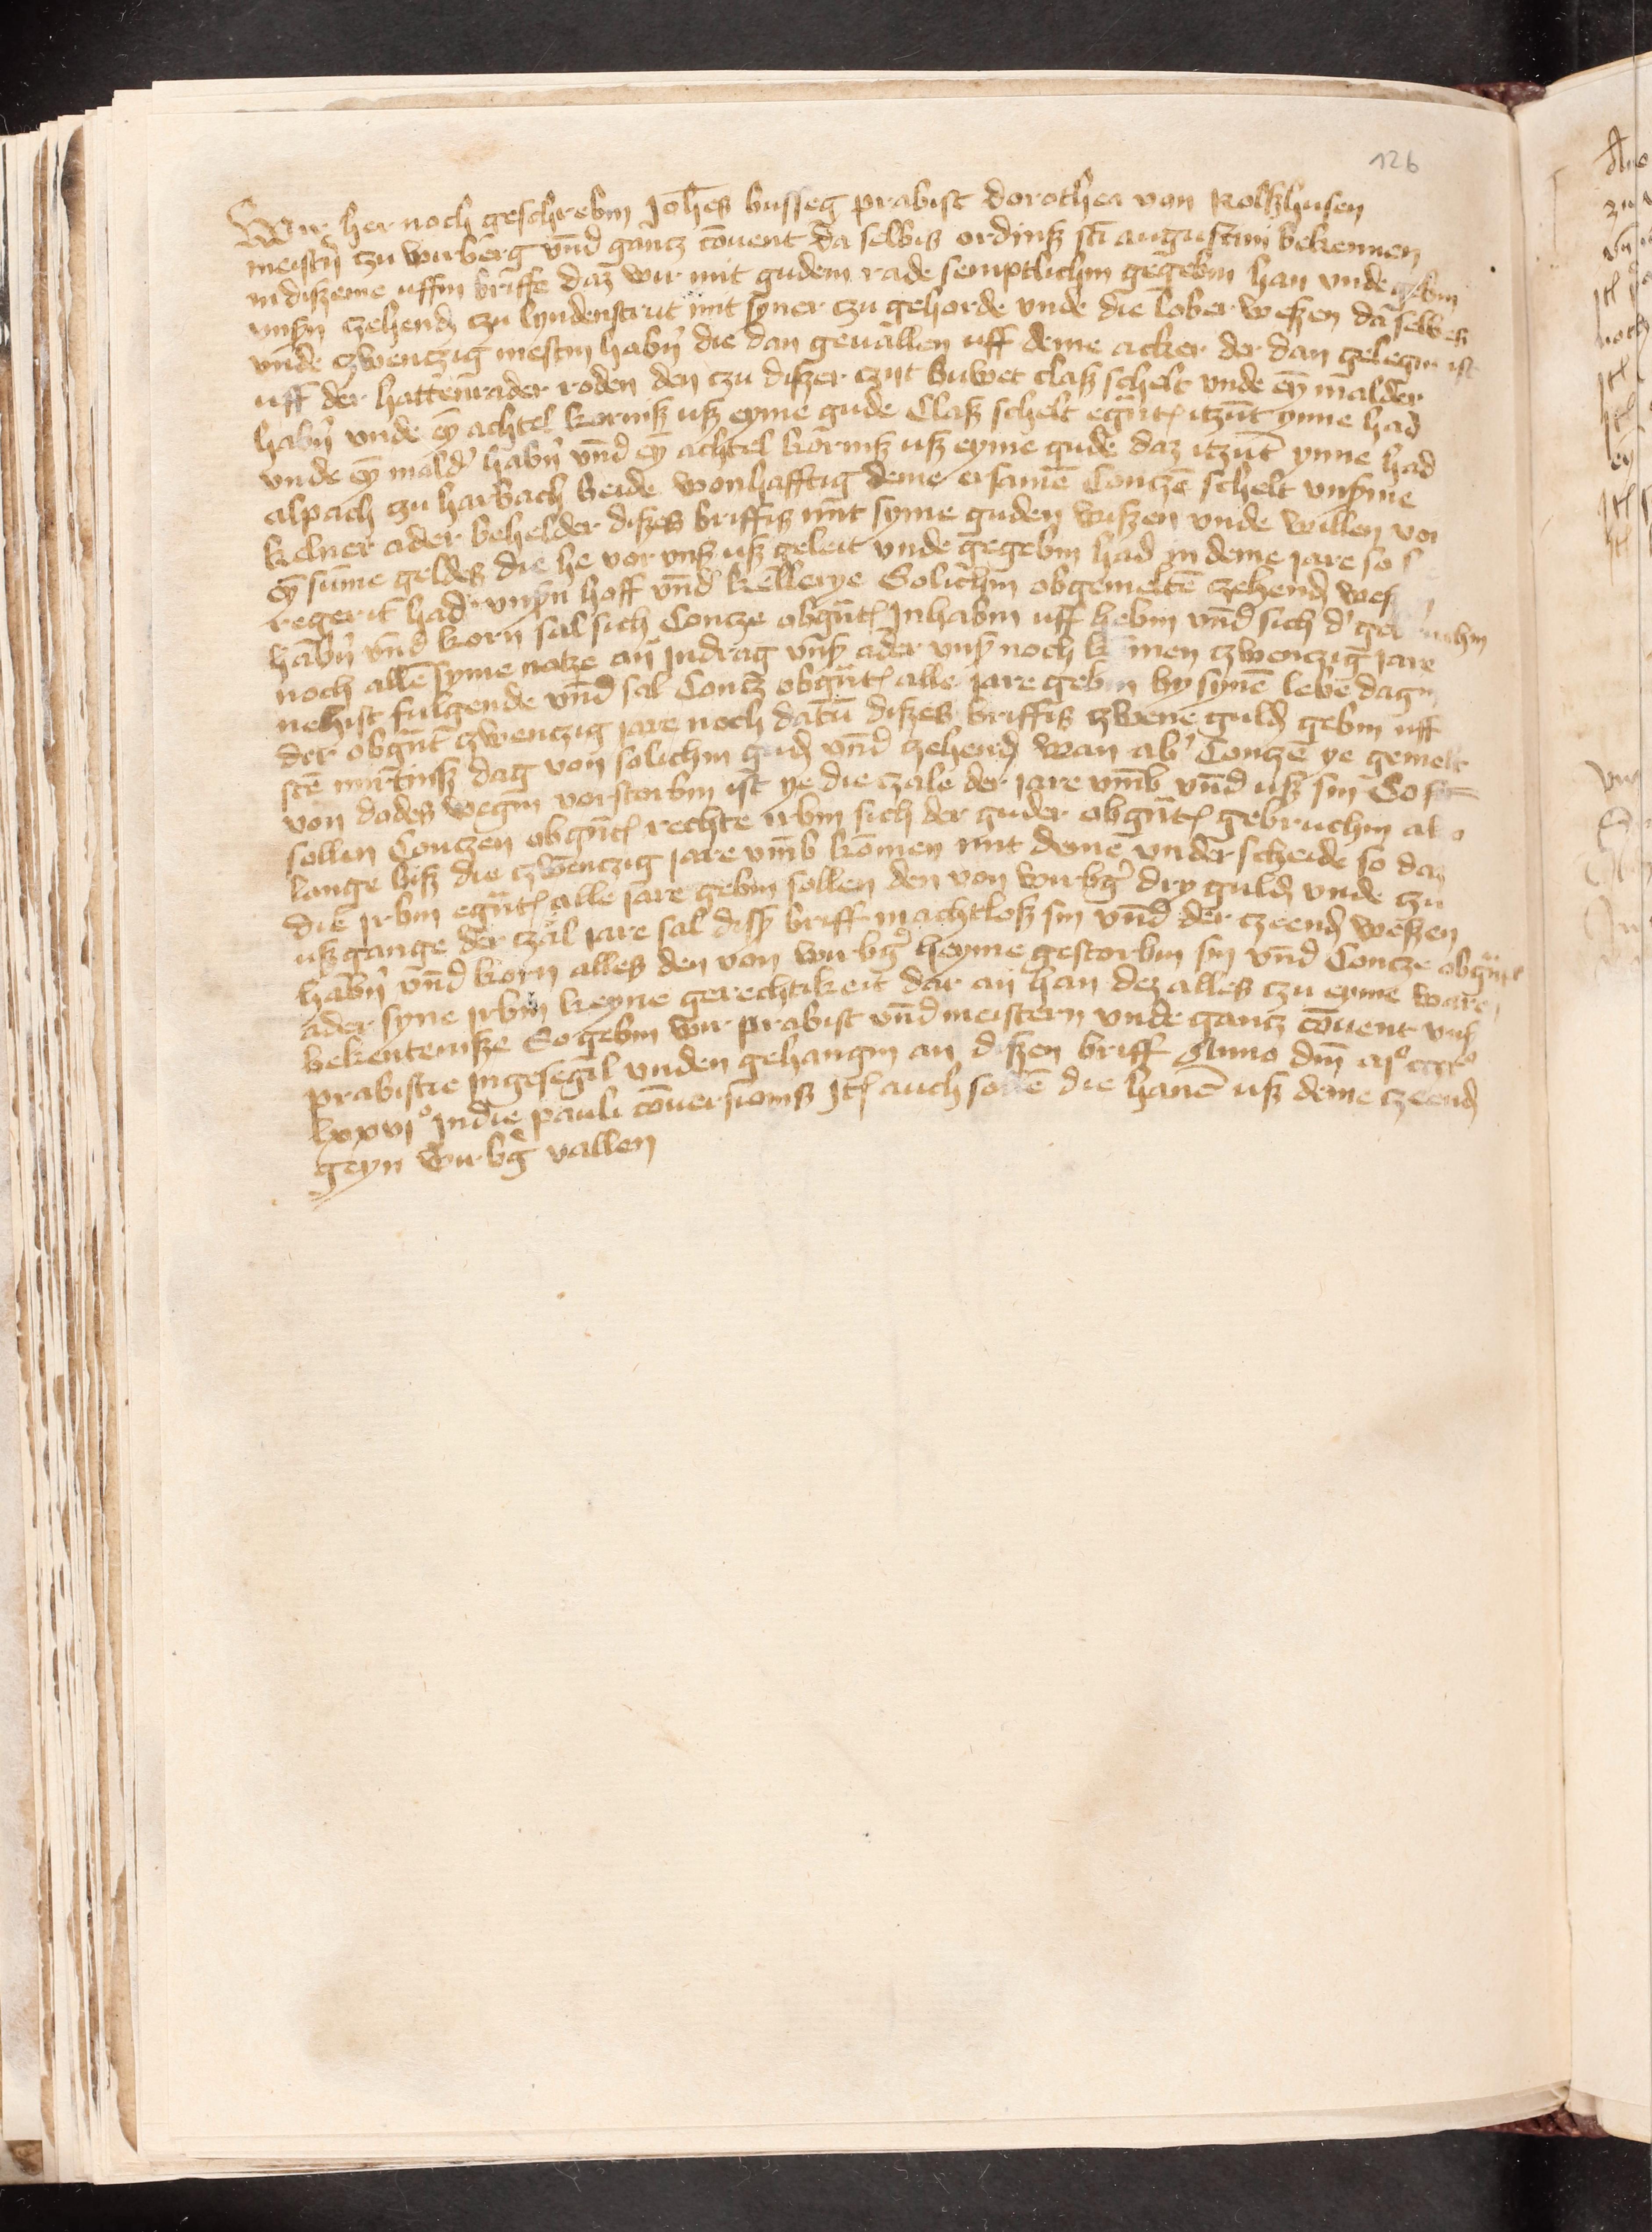 126
Wir her noch geschrebin Joh̄es busseg prabist dorothea von Rolßhusen
meistṉ czu wirberg vn̄d gantz cōuent da selbis ordinß sc̄i augustini bekennen
in dißeme uffin briffe daz wir mit gudem rade semptlichin gegebin han vnde gebin
vnßn czehend czu lyndenstrut mit syner czu gehorde vnde die lober weßen da selbes
vnde czwenczig mestin habṉ die dan geuallen uff deme acker der dan gelegin ist
uff der hattenrader roden den czu dißer czijt buwet claß schelt vnde eyn malder
habṉ vnde eyn achtel kornß uß eyme gude Claß schelt egn̄t itzūt ynne had
vnde eyn mald' habṉ vn̄d eyn achtel kornß uß eyme gude daz itzūt ynne had
alpach czu harbach beide wonhafftig deme ersamē Conczē schelt vnßme
kelner ader behelder dißes briffis mit syme guden wißen vnde willen vor
eyn sūme geldes die he vor vnß uß geleit vnde gegebin had in deme jare so
regerit had vnßn hoff vn̄d kellerye Solichin obgemeltē czehend
habṉ vn̄d korn sal sich Concze obgn̄t Inhabin uff hebin vn̄d sich d'
noch allē syme notze an Indrag vnß ader vnß noch czwenczig jare
nehist fulgende vn̄d sal Concz obgn̄t alle jare gebin by synē lebē dagin
der obgn̄t czwenczig jare noch datū dißes briffis czwene guld gebin uff
sc̄ē mirtinß dag von solichin gud vn̄d czehend wan ab' Conczē ye gemelt
von dodes wegin vorstorbin ist ye die czale der jare vm̄b vn̄d uß sin So
sollen Conczen obgn̄t rechte irbin sich der guder obgn̄t gebruchin
lange biß die czwenczig jare vm̄b komen mit deme vnderscheide so daz
die Irbin egn̄t alle jare gebin sollen den von wirbg' dry guld vnde czu
ußgange der czal jare sal diß briff machtloß sin vn̄d der czeend weßen
habṉ vn̄d korn alles den von wirbg' heyme gestorbin sin vn̄d Concze obgn̄t
ader syne Irbin keyne gerechtikeit dar an han dez alles czu eyme ware
bekenteniße So gebin wir prabist vn̄d meistern vnde gantz cōuent vnß
prabistie Ingesegil vnden gehangin an dißen briff Anno dn̄i mº ccccº
lxxvjº In die pauli cōuersionis Itē auch sollē die hanē uß deme czeend
geyn wirbg' vallen